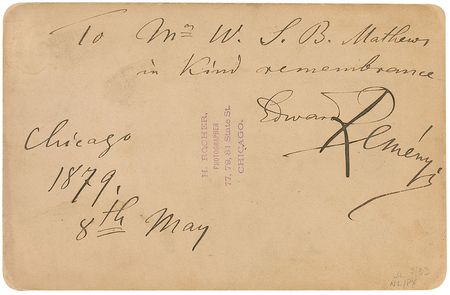 To Mr W. S. B. Mathews
in Kind remembrance
Edward Reményi
Chicago
1879.
8th May
H. ROCHER,
PHOTOGRAPHER
77, 79, 81 State St.
CHICAGO.